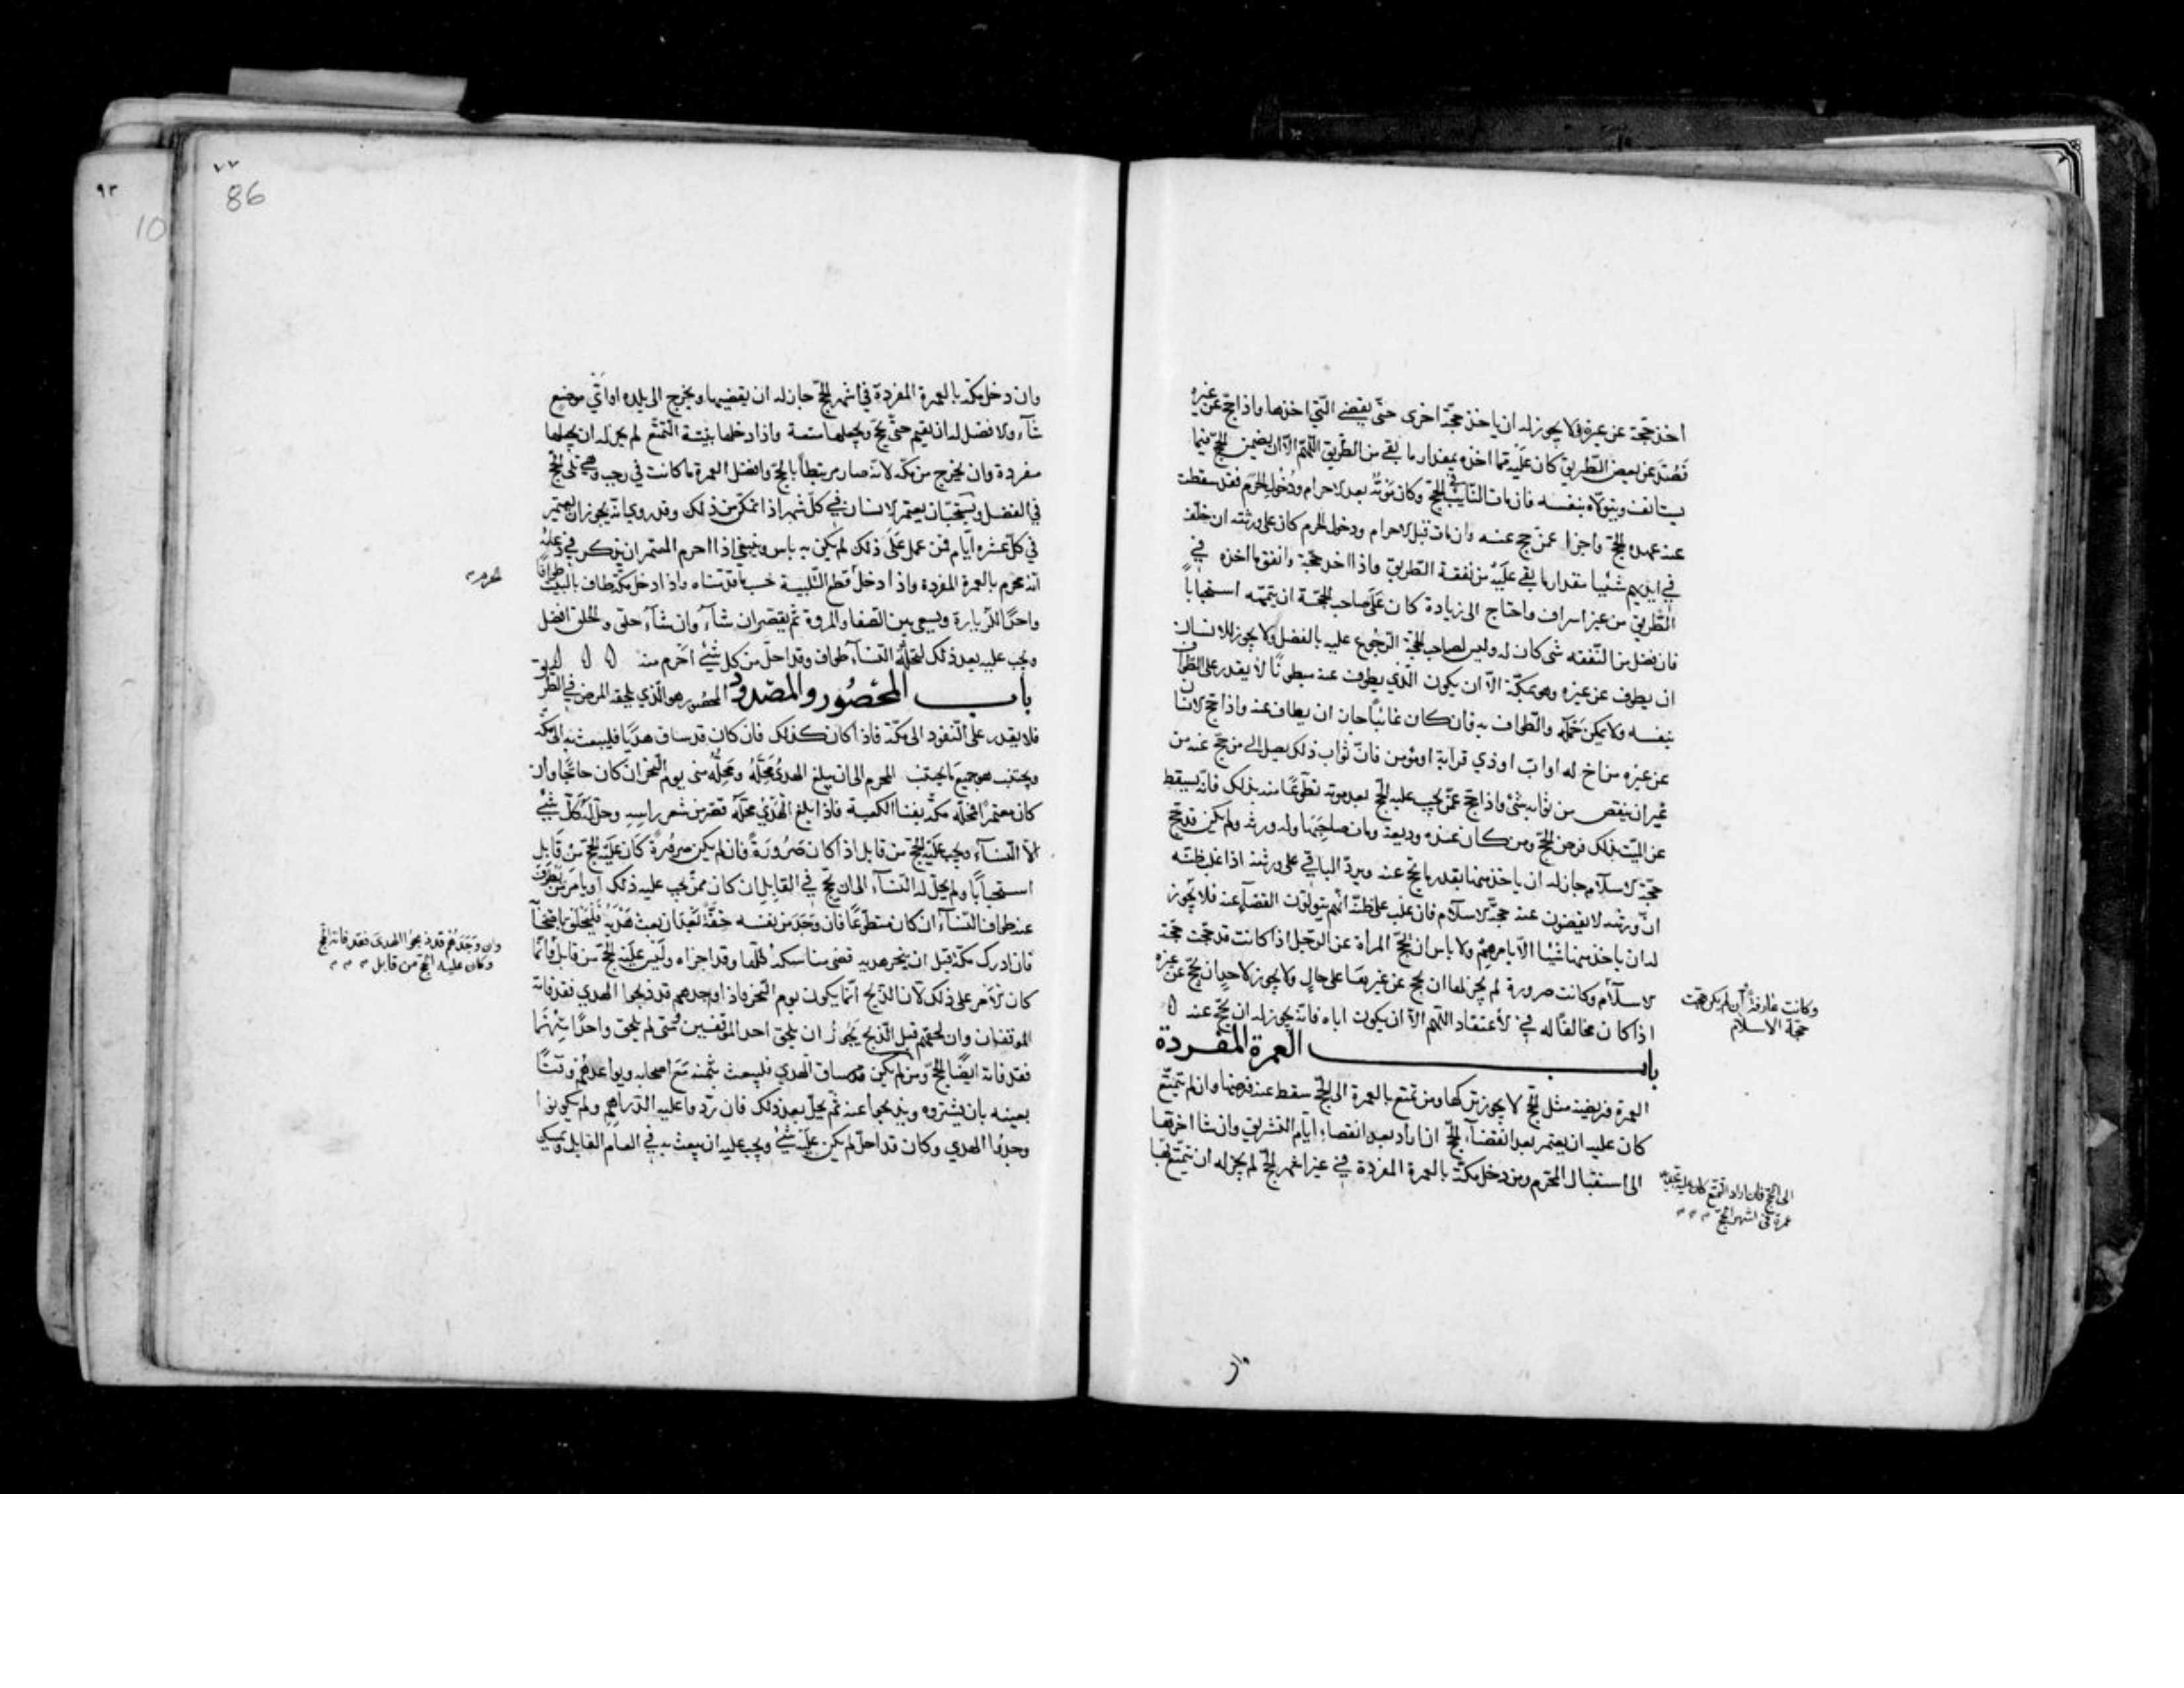 اخذ حجّة عن غيره فلا يجوز له ان ياخذ حجّة اخرى حتّى يقضي الّتي اخذها واذا حجّ عن غيره
فصُدّ عن بعض الطّريق كان عليه ممّا اخذه بمقدار ما بقي من الطّريق اللّهم الّا ان يضمن الحجّ فيما
يستانف ويتولّاه بنفسه فان مات النّايب في الحجّ وكان موته بعد الاحرام ودخول الحرم فقد سقطت
عنه عهدة الحجّ واجزا عمّن حج عنه وان مات قبل الاحرام ودخول الحرم كان على ورثته ان خلّف
في ايديهم شيئا مقدار ما بقي عليه من نفقة الطّريق واذا اخذ حجّة وانفق ما اخذه في
الطّريق من غير اسراف واحتاج الى زيادة كان على صاحب الحجّة ان يتمّمه استحباباً
فان فضل من النّفقه شي كان له وليس لصاحب الحجّة الرّجوع عليه بالفضل ولا يجوز للانسان
ان يطوف عن غيره وهو بمكّة الّا ان يكون الّذي يطوف عنه مبطونًا لا يقدر على الطّواف
بنفسه ولا يمكن حمله والطّواف به فان كان غائباً جاز ان يطاف عنه واذا حج الانسان
عن غيره من اخ له او اب او ذي قرابة او مؤمن فانّ ثواب ذلك يصل الى من حجّ عنه من
غير ان ينقص من ثوابه شئ واذا حجّ عمّن يجب عليه الحجّ بعد موته تطوّعًا منه بذلك فانّه يسقط
عن الميّت بذلك فرض الحجّ ومن كان عنده وديعة ومات صاحبها وله ورثه ولم يكن قد حجّ
حجّة الاسلام جاز له ان ياخذ منها بقدر ما يحجّ عنه ويردّ الباقي على ورثته اذا غلب ظنّه
انّ ورثته لا يقضون عنه حجّة الاسلام فان غلب على ظنّه انّهم يتولّون القضآء عنه فلا يجوز
له ان ياخذ منها شيئا الّا بامرهم ولا باس ان تحجّ المراة عن الرّجل اذا كانت قد حجّت حجّة
الاسلام وكانت صرورة لم يجز لها ان تحج عن غيرها على حال ولا يجوز لاحد ان يحجّ عن غيره
اذا كان مخالفاً له في الاعتقاد اللّهم الّا ان يكون اباه فانّه يجوز له ان يحجّ عنه
وكانت عارفة وان لم تكن حجّت
حجّة الاسلام
باب العمرة المفردة
العمرة فريضة مثل الحجّ لا يجوز تركها ومن تمتع بالعمرة الى الحجّ سقط عنه فرضها وان لم يتمتّع
كان عليه ان يعتمر بعد انقضآء الحجّ ان اراد بعد انقضاء ايّام التّشريق وان شا اخّرها
الى استقبال المحرّم ومن دخل مكّة بالعمرة المفردة في غير اشهر الحجّ لم يجز له ان يتمتّع بها
الى الحجّ فان اراد التّمتّع كان عليه تجديد
عمرة في اشهر الحجّ
وان
٧٧
86
٩٣
10
وان دخل مكّة بالعمرة المفردة في اشهر الحجّ جاز له ان يقضيها ويخرج الى بلده او اتّي موضع
شآء والافضل له ان يقيم حتّى يحجّ ويجعلها متعة واذا دخلها بنيّة التّمتّع لم يجز له ان يجعلها
مفردة وان يخرج من مكّة لانّه صار مرتبطاً بالحجّ وافضل العمرة ما كانت في رجب وهي تلي الحجّ
في الفضل ويستحبّ ان يعتمر الانسان في كلّ شهر اذا تمكّن من ذلك وقد روي انّه يجوز ان يعتمر
في كلّ عشرة ايّام فمن عمل على ذلك لم يكن به باس وينبغي اذا احرم المعتمر ان يذكر في دعائه
انّه محرم بالعمرة المفردة واذا دخل قطع التّلبية حسب ما قدّمناه واذا دخل مكّة طاف بالبيت طوافًا
الحرم
واحدًا للزّيارة ويسعى بين الصّفا والمروة ثم يقصّر ان شآء وان شآء حلق والحلق افضل
ويجب عليه بعد ذلك لتحلّة النّسآء طواف وقد احلّ من كل شيء احرم منه
باب المحصُور والمصدود المحصُور هو الّذي يلحقه المرض في الطّريق
فلا يقدر على النّفوذ الى مكّة فاذا كان كذلك فان كان قد ساق هديًا فليبعث به الى مكّة
ويجتنب هو جميع ما يجتنب المحرم الى ان يبلغ الهدي محلّه ومحلّه منى يوم النّحر ان كان حاجًّا وان
كان معتمرًا فمحلّه مكّة بفنا الكعبة فاذا بلغ الهدي محلّه قصّر من شعر راسه وحلّ له كلّ شئ
الّا النّسآء ويجب عليه الحجّ من قابل اذا كان صرورة فان لم يكن صرورة كان عليه الحجّ من قابل
استحبابًا ولم يحلّ له النّسآء الى ان يحجّ في القابل ان كان ممّن يجب عليه ذلك او يامر من يطوف
عنه طواف النّسآء ان كان متطوّعًا فان وجد من نفسه خفّة بعد ان بعث هديه فليلحق باصحابه
فان ادرك مكّة قبل ان ينحر هديه قضى مناسكه كلّها وقد اجزاه وليس عليه الحجّ من قابل
وان وجدهم قد ذبحوا الهدي فقد فاته الحج
وكان عليه الحج من قابل
كان الامر على ذلك لانّ الذّبح انّما يكون يوم النّحر فاذا وجدهم قد ذبحوا الهدي فقد فاته
الموقفان وان لحقهم قبل الذّبح يجوز ان يلحق احد الموقفين فمتى لم يلحق واحدًا منهما
فقد فاته ايضًا الحجّ ومن لم يكن قد ساق الهدي فليبعث بثمنه مع اصحابه ويواعدهم وقتًا
بعينه بان يشتروه ويذبحوا عنه ثمّ يحلّ بعد ذلك فان ردّوا عليه الدّراهم ولم يكونوا
وجدوا الهدي وكان قد احلّ لم يكن عليه شئ ويجب عليه ان يبعث به في العام القابل ويمسك